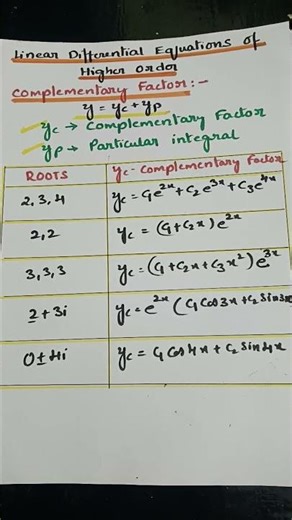 Linear Differential Equations of
Higher Order
Complementary Factor:-
y = yc + yp
yc → Complementary Factor
yp → Particular integral
ROOTS yc - Complementary Factor
2, 3, 4 yc = c₁e²ˣ + c₂e³ˣ + c₃e⁴ˣ
2, 2 yc = (c₁ + c₂x) e²ˣ
3, 3, 3 yc = (c₁ + c₂x + c₃x²) e³ˣ
2 ± 3i yc = e²ˣ (c₁ cos 3x + c₂ sin 3x
0 ± 4i yc = c₁ cos 4x + c₂ sin 4x